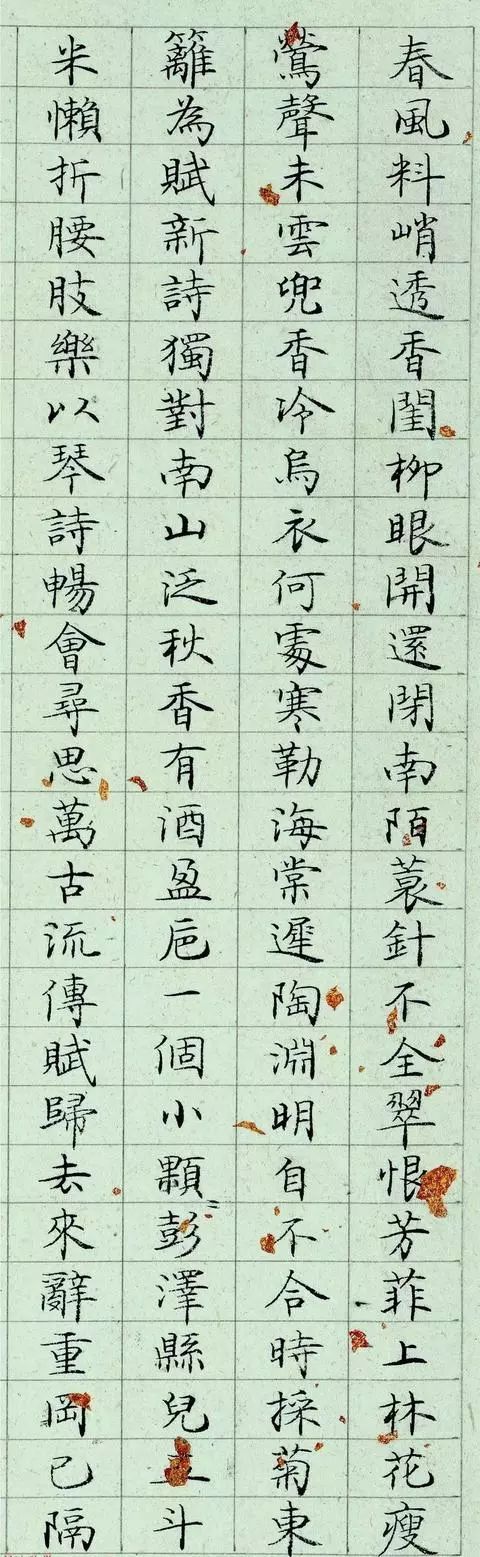 春風料峭透香閨柳眼開還閉南陌蓑針不全翠恨芳菲上林花瘦
鶯聲未雲兜香冷烏衣何處寒勒海棠遲陶淵明自不合時採菊東
籬為賦新詩獨對南山泛秋香有酒盈巵一個小顆〻彭澤縣兒五斗
米懶折腰肢樂以琴詩暢會尋思萬古流傳賦歸去來辭重岡已隔